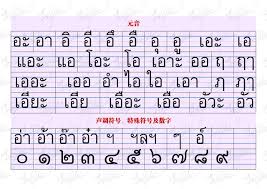 元音
อะ อา อิ อี อึ อื อุ อู เอะ เอ
แอะ แอ โอะ โอ เอาะ ออ ฤ ฤๅ
เออะ เออ อำ ไอ ใอ เอา ฦ ฦๅ
เอียะ เอีย เอือะ เอือ อัวะ อัว
声调符号、特殊符号及数字
อ่า อ้า อ๊า อ๋า ฯ ฯลฯ ๆ อ์
๐ ๑ ๒ ๓ ๔ ๕ ๖ ๗ ๘ ๙